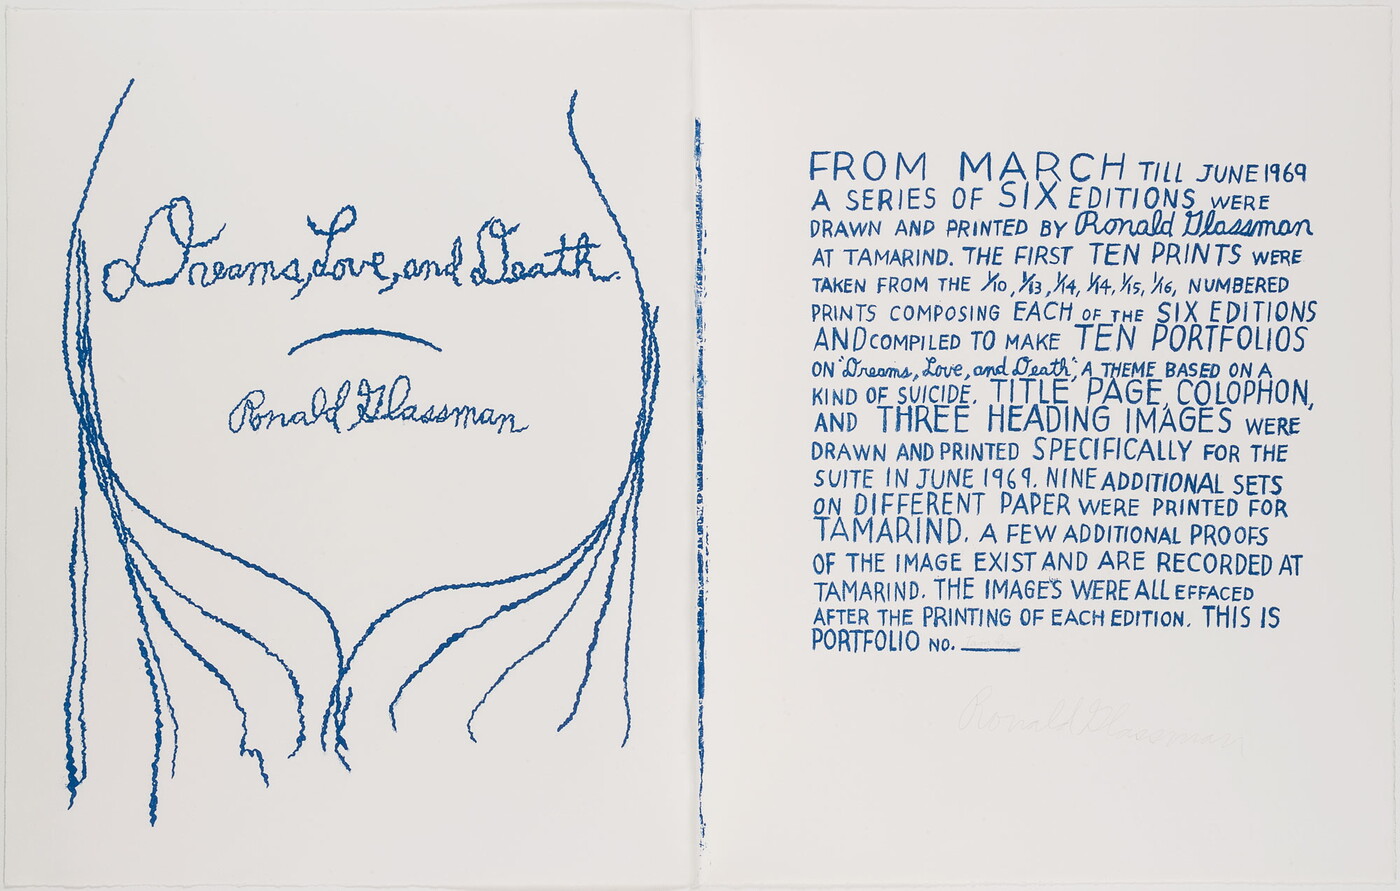 Dreams, Love, and Death.
Ronald Glassman
FROM MARCH TILL JUNE 1969
A SERIES OF SIX EDITIONS WERE
DRAWN AND PRINTED BY Ronald Glassman
AT TAMARIND. THE FIRST TEN PRINTS WERE
TAKEN FROM THE 1/10, 1/13, 1/14, 1/14, 1/15, 1/16, NUMBERED
PRINTS COMPOSING EACH OF THE SIX EDITIONS
AND COMPILED TO MAKE TEN PORTFOLIOS
ON "Dreams, Love, and Death", A THEME BASED ON A
KIND OF SUICIDE. TITLE PAGE, COLOPHON,
AND THREE HEADING IMAGES WERE
DRAWN AND PRINTED SPECIFICALLY FOR THE
SUITE IN JUNE 1969. NINE ADDITIONAL SETS
ON DIFFERENT PAPER WERE PRINTED FOR
TAMARIND. A FEW ADDITIONAL PROOFS
OF THE IMAGE EXIST AND ARE RECORDED AT
TAMARIND. THE IMAGES WERE ALL EFFACED
AFTER THE PRINTING OF EACH EDITION. THIS IS
PORTFOLIO NO.
Ronald Glassman